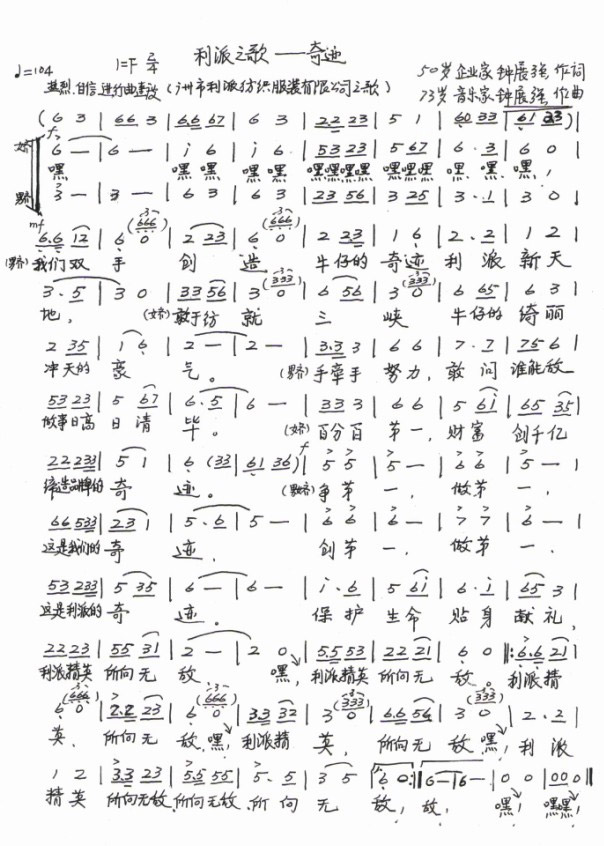 利派之歌——奇迹
♩=104 1=F 2/4
热烈、自信、进行曲速度 (州市利派纺织服装有限公司之歌)
50岁企业家钟展强作词
73岁音乐家钟展强作曲
(6 3 | 66 3 | 66 67 | 6 3 | 22 23 | 5 1 | 60 33 | 61 23)
6 — | 6 — | i 6 | i 6 | 53 23 | 5 67 | 6·3 | 6 0 |
嘿 嘿 嘿 嘿 嘿 嘿嘿嘿嘿 嘿嘿嘿 嘿 嘿 嘿,
3 — | 3 — | 6 3 | 6 3 | 23 56 | 3 25 | 3·1 | 3 0 |
mf
6·6 12 | 6 0 (666) | 2 23 | 6 0 (666) | 2 23 | 1 6 | 2·2 | 1 2 |
我们双 手 创 造 牛仔的 奇迹 利派 新天
3·5 | 3 0 | 33 56 | 3 0 (333) | 6 56 | 3 0 (333) | 6 65 | 6 3 |
地, (娇)敢于纺 就 三 峡 牛仔的 绮丽
2 35 | 1 6 | 2 — | 2 — | 3·3 3 | 6 6 | 7·7 | 756 |
冲天的 豪 气。 手牵手 努力, 敢问 谁能敌
53 23 | 5 67 | 6·5 | 6 — | 33 3 | 6 6 | 5 6i | 65 35 |
做事日高 日清 毕。 (娇)百分百 第一, 财富 创千亿
22 233 | 5 1 | 6 (33 | 61 36) | 5 5 | 5 — | 6 6 | 5 — |
缔造品牌的 奇 迹。 争第 一, 做第 一,
66 533 | 23 1 | 5·6 | 5 — | 6 6 | 6 — | 7 7 | 6 — |
这是我们的 奇 迹, 创第 一, 做第 一.
53 233 | 5 35 | 6 — | 6 — | i·6 | 5 6i | 6·i | 65 3 |
这是利派的 奇 迹。 保护 生命 贴身 献礼,
22 23 | 55 31 | 2 — | 2 0 | 5·5 53 | 22 21 | 6 0 |: 6·6 21 |
利派精英 所向无 敌, 嘿, 利派精英 所向无 敌。 利派精
6 0 (666) | 2·2 23 | 6 0 (666) | 33 32 | 3 0 (333) | 6·6 56 | 3 0 (333) | 2·2 |
英, 所向无 敌,嘿, 利派精 英, 所向无 敌,嘿, 利派
1 2 | 3·3 23 | 5·5 55 | 5·5 | 3 5 | 6 0 :|| 6 — | 6 — | 0 0 | 00 0 ||
精英 所向无敌,所向无敌,所向 无 敌, 敌, 嘿, 嘿嘿,